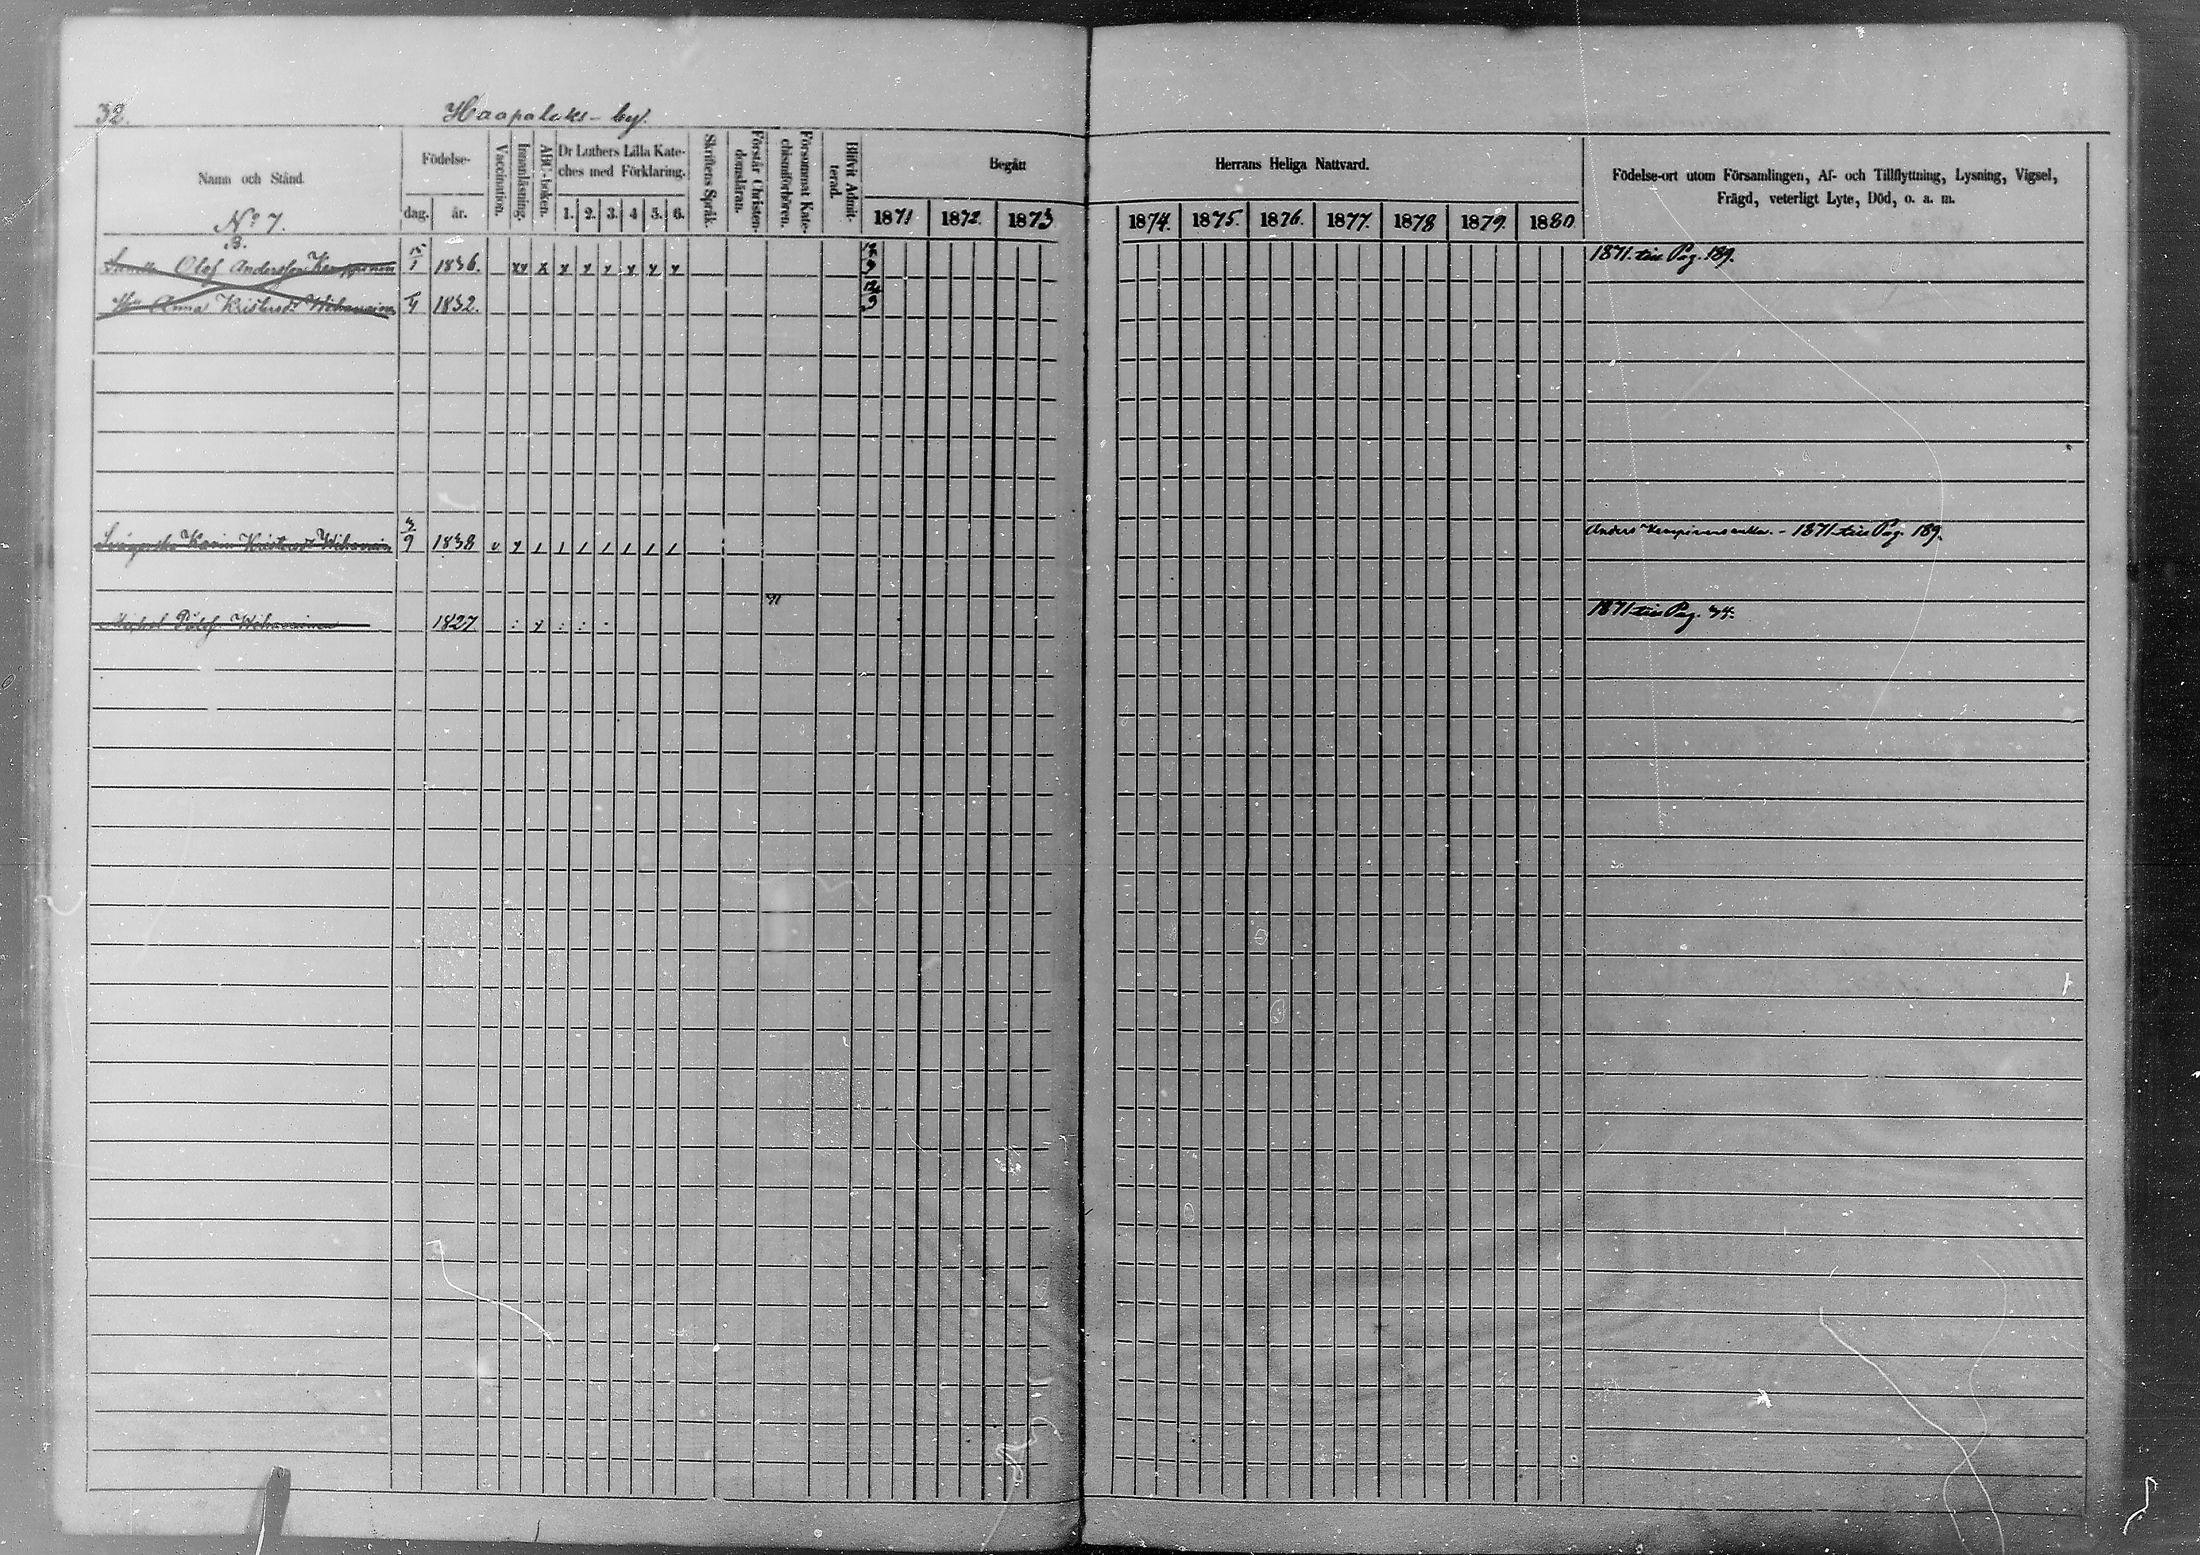 32. Haapalaks-by.
Namn och Stånd.
Födelse-
dag. år.
Vaccination.
Innanläsning.
ABC-boken.
Dr Luthers Lilla Kate-
ches med Förklaring.
1. 2. 3. 4 5. 6.
Skriftens Språk.
Förstår Christen-
domsläran.
Försummat Kate-
chismiförhören.
Blifvit Admit-
terad.
Begått Herrans Heliga Nattvard.
1871 1872. 1873 1874. 1875. 1876. 1877. 1878 1879. 1880.
Födelse-ort utom Församlingen, Af- och Tillflyttning, Lysning, Vigsel,
Frägd, veterligt Lyte, Död, o. a. m.
No 7.
B.
Olof Andersson Kemppinen 1836. xy x y y y y y y 1871 till Pag. 189.
Hu Anna Kristersdr Wihavainen 1832.
Karin Kristersdr Wihavain 3/9 1838 v y / / / / / / / Anders Kempinens enka. - 1871 till Pag. 189.
Michel Pålss. Wihavainen 1827 1871 till Pag. 34.